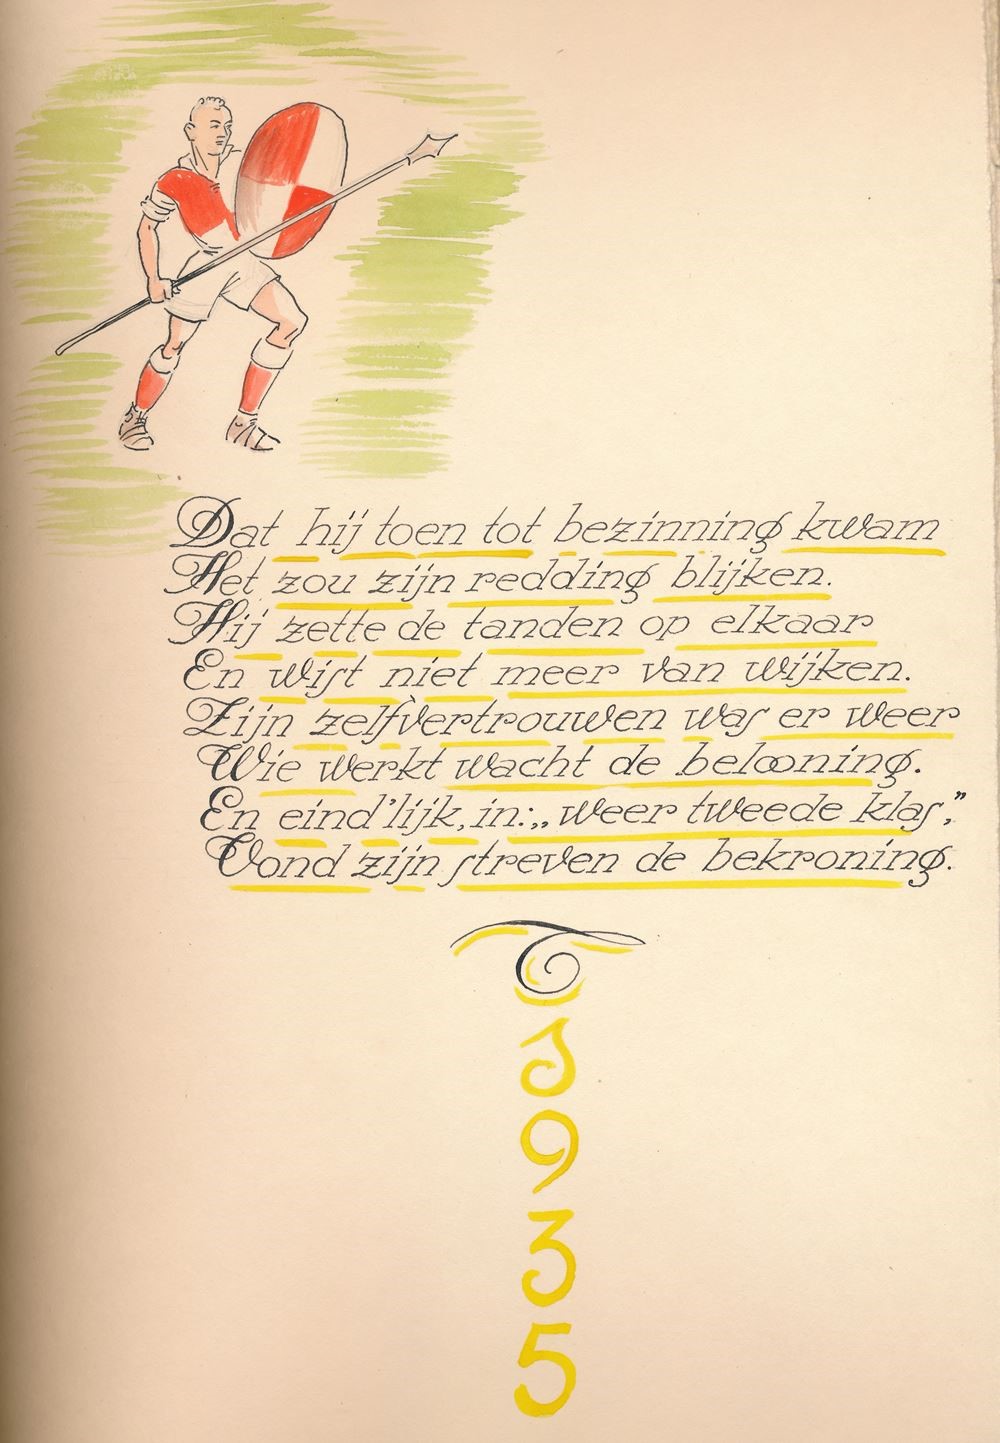 Dat hij toen tot bezinning kwam
Het zou zijn redding blijken.
Hij zette de tanden op elkaar
En wist niet meer van wijken.
Zijn zelfvertrouwen was er weer
Wie werkt wacht de belooning.
En eind'lijk, in: „weer tweede klas,”
Vond zijn streven de bekroning.
1
9
3
5